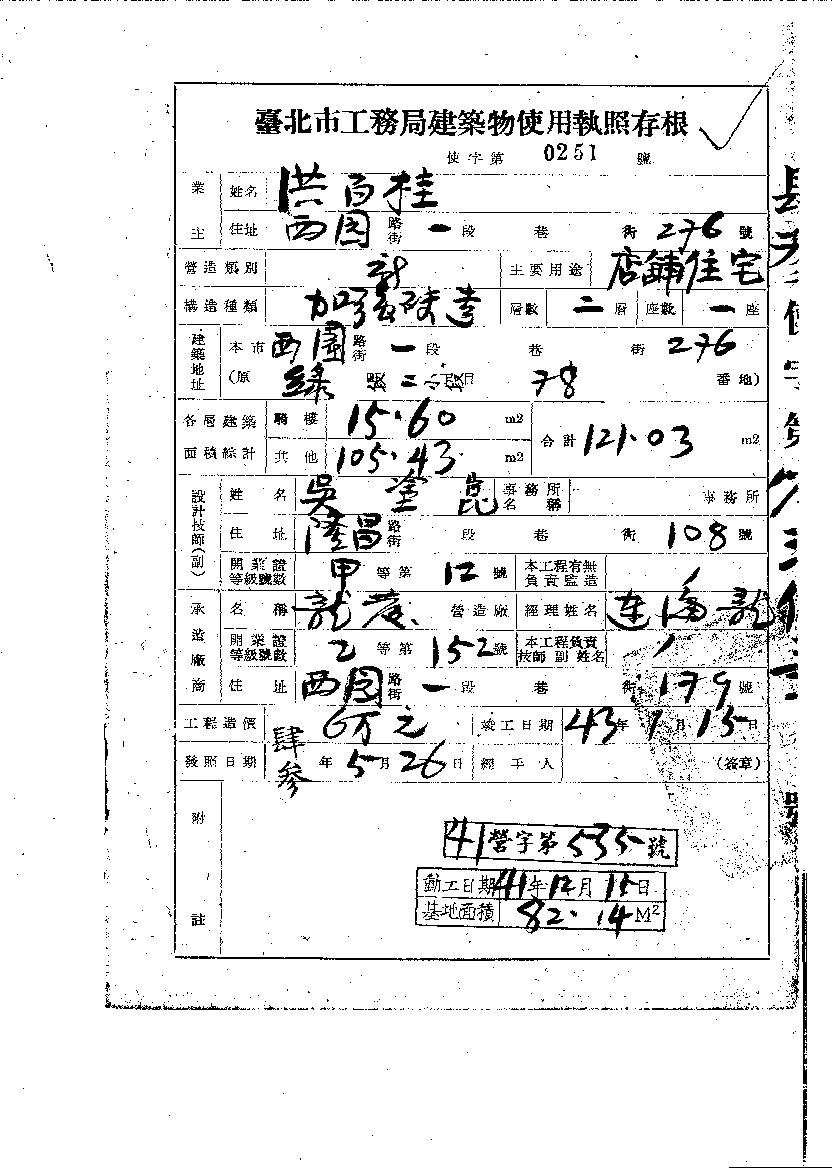 臺北市工務局建築物使用執照存根
使字第 0251 號
業主 姓名 洪百桂
住址 西園 路街 一段 巷 街 276 號
營造類別 新 主要用途 店鋪住宅
構造種類 加強磚造 層數 二層 座數 一座
建築地址 本市 西園 路街 一段 巷 街 276
(原 綠 段二小段 78 番地)
各層建築面積綜計 騎樓 15.60 m2 合計 121.03 m2
其他 105.43 m2
設計技師(副) 姓名 吳塗昆 事務所名稱 事務所
住址 隆昌 路街 段 巷 街 108 號
開業證等級號數 甲 等第 12 號 本工程有無負責監造
承造廠商 名稱 龍 營造廠 經理姓名 連 龍
開業證等級號數 乙 等第 152 號 本工程負責技師 副 姓名
住址 西園 路街 一段 巷 街 179 號
工程造價 6万元 竣工日期 43年 1月 15日
發照日期 肆參年 5月 26日 經手人 (簽章)
附註
41營字第535號
動工日期 41年12月15日
基地面積 82.14 M2